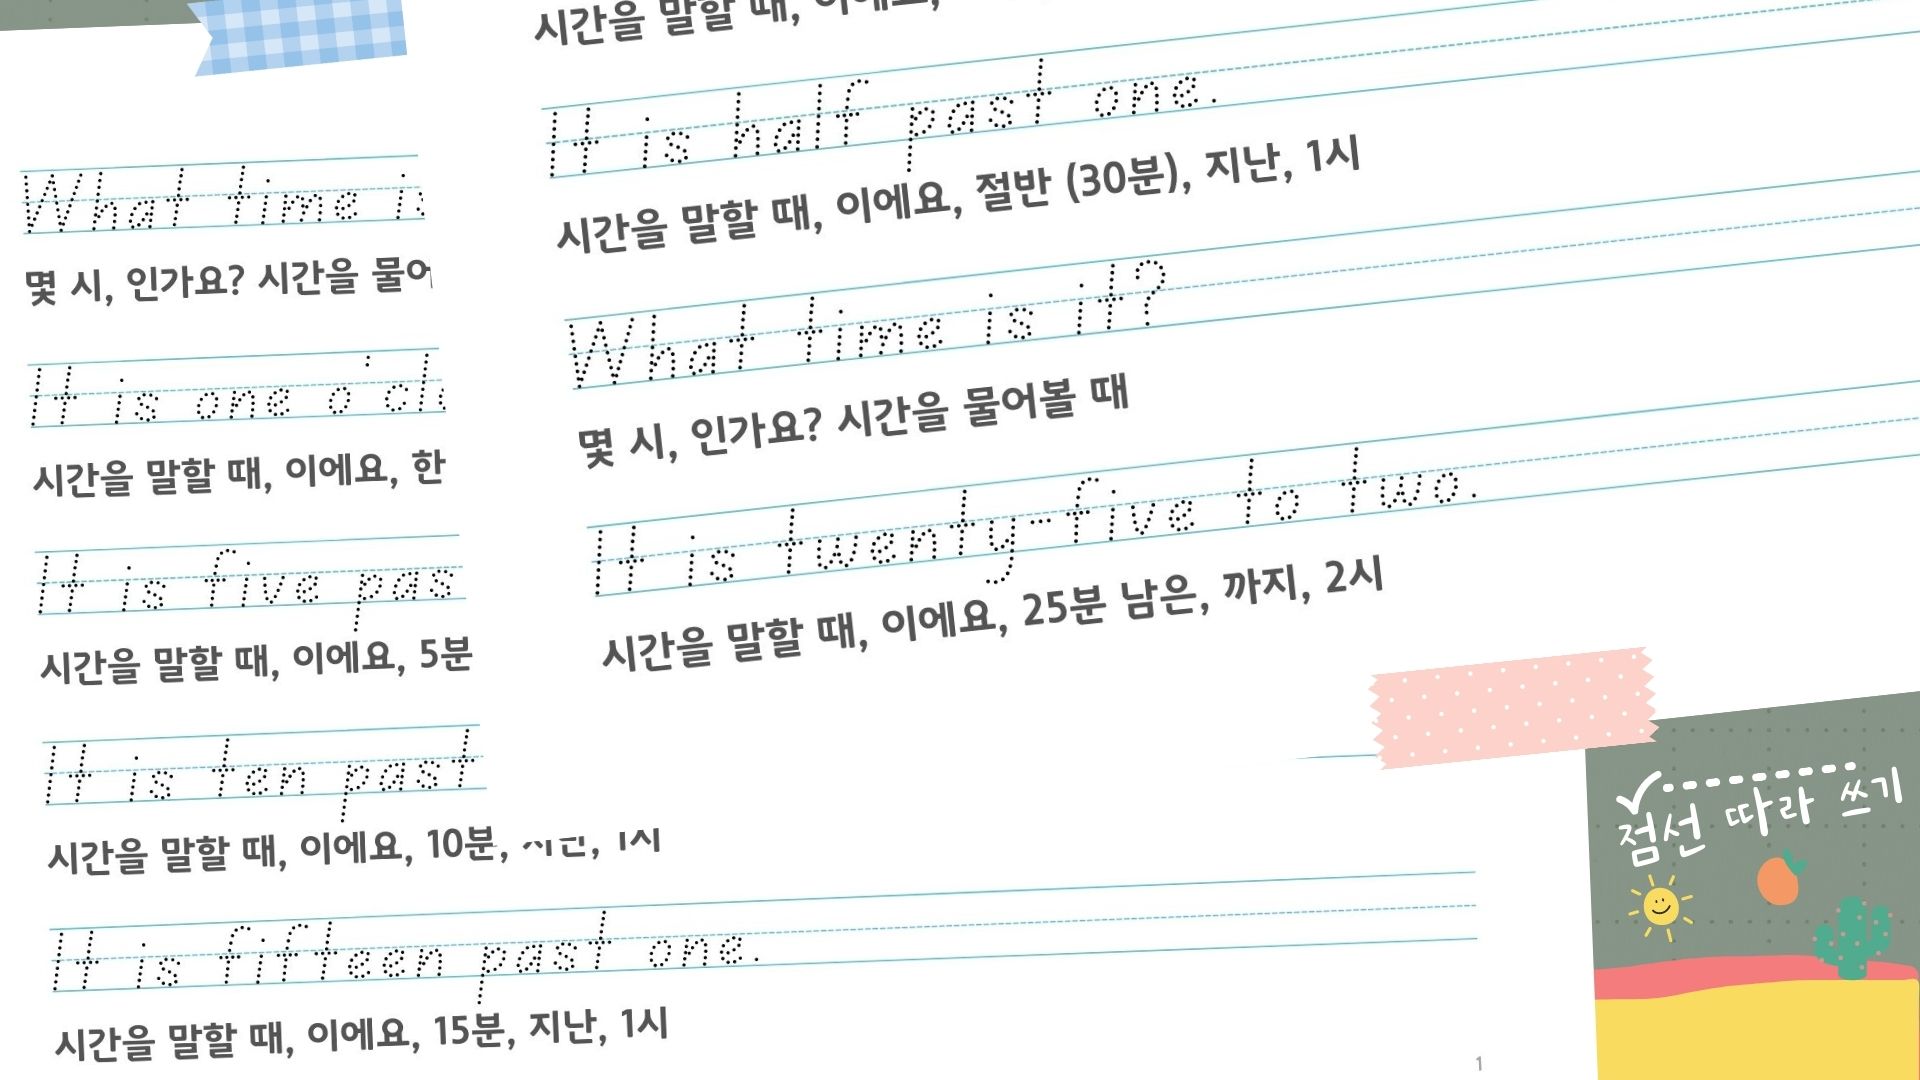 What time is
몇 시, 인가요? 시간을 물어
It is one o'cl
시간을 말할 때, 이에요, 한
It is five pas
시간을 말할 때, 이에요, 5분
It is ten past
시간을 말할 때, 이에요, 10분, 지난, 1시
It is fifteen past one.
시간을 말할 때, 이에요, 15분, 지난, 1시
1
시간을 말할 때, 이에요,
It is half past one.
시간을 말할 때, 이에요, 절반 (30분), 지난, 1시
What time is it?
몇 시, 인가요? 시간을 물어볼 때
It is twenty-five to two.
시간을 말할 때, 이에요, 25분 남은, 까지, 2시
점선 따라 쓰기